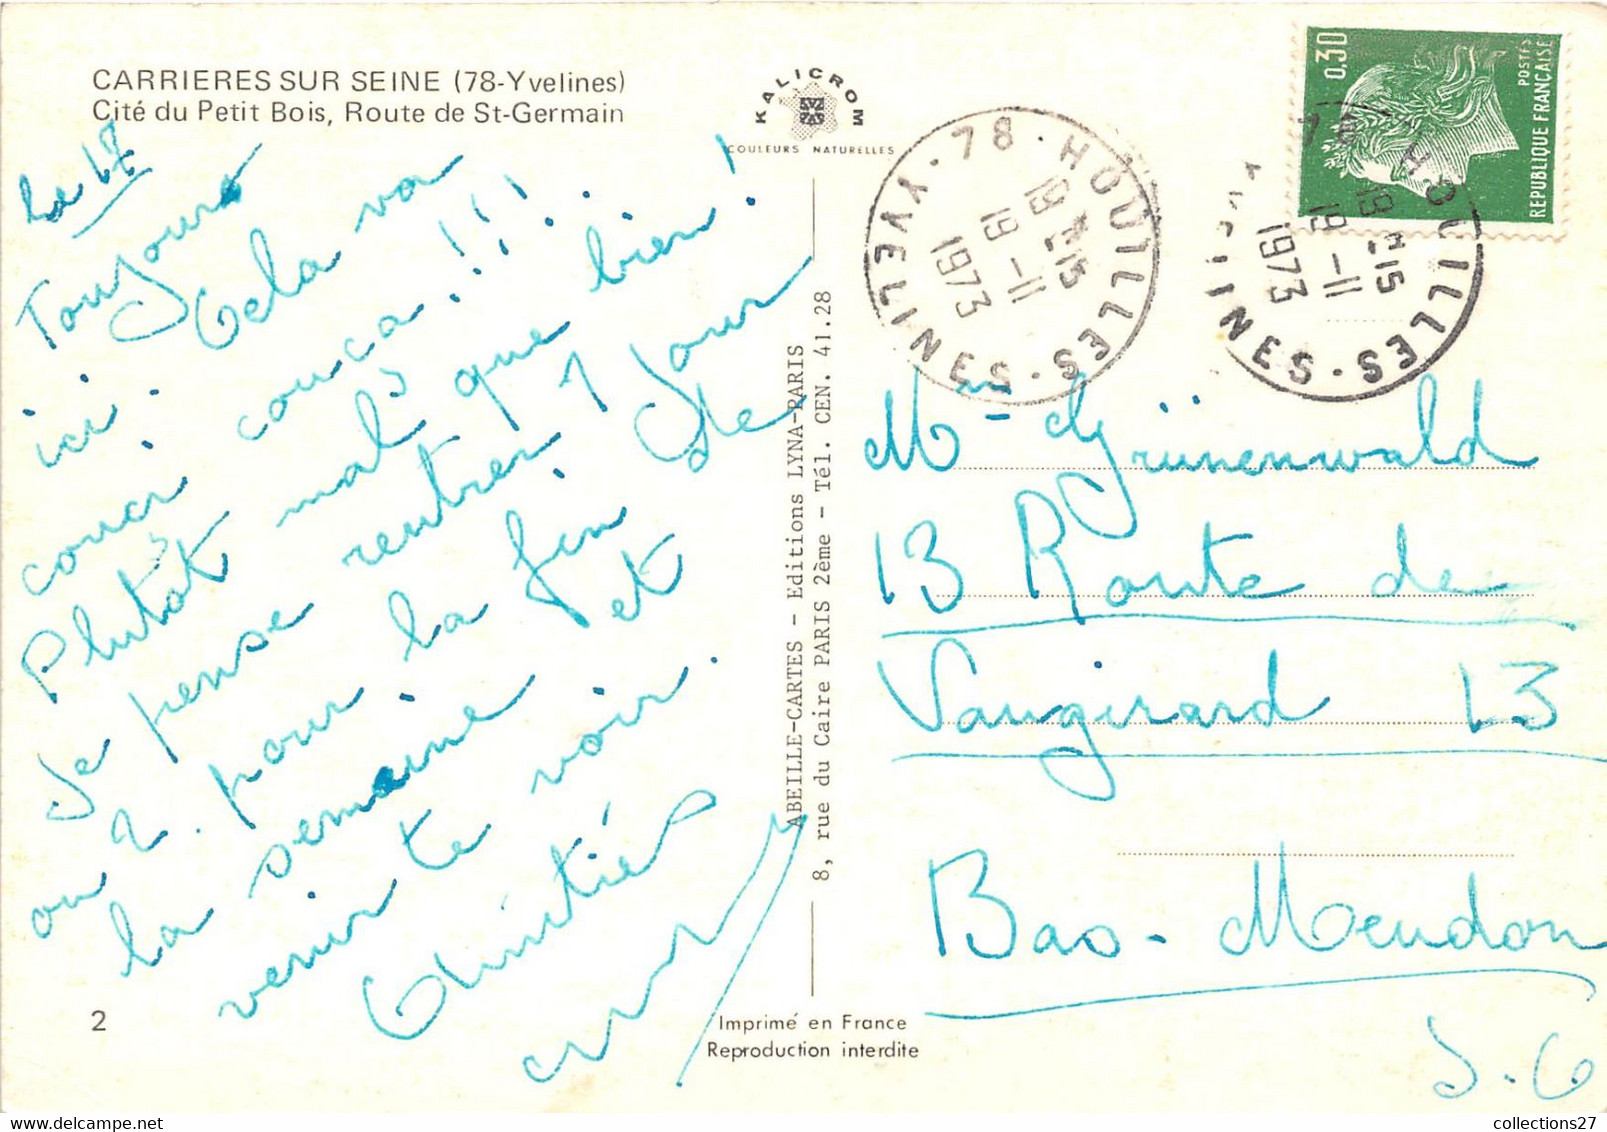 CARRIERES SUR SEINE (78-Yvelines)
Cité du Petit Bois, Route de St-Germain
KALICROM
COULEURS NATURELLES
Le 17
Toujours
ici. Cela va
couci couça!!!...
Plutôt mal que bien!
Je pense rentrer 1 jour
ou 2 pour la fin de
la semaine et
venir te voir.
Amitiés
ABEILLE-CARTES - Editions LYNA-PARIS
8, rue du Caire PARIS 2ème - Tél. CEN. 41.28
2
Imprimé en France
Reproduction interdite
0,30
POSTES
REPUBLIQUE FRANÇAISE
78 · HOUILLES · YVELINES
19 H 15
19 - 11
1973
78 · HOUILLES · YVELINES
19 H 15
19 - 11
1973
Mme Grünenwald
13 Route de
Vaugirard 13
Bas-Meudon
S.O
collections27